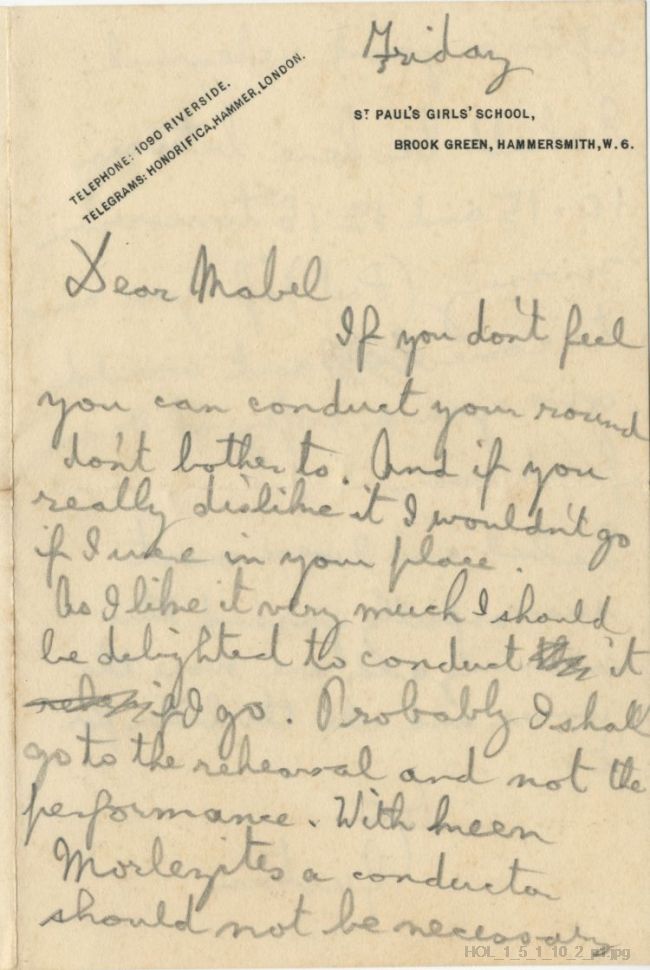 Friday
TELEPHONE: 1090 RIVERSIDE.
TELEGRAMS: HONORIFICA, HAMMER, LONDON.
ST PAUL'S GIRLS' SCHOOL,
BROOK GREEN, HAMMERSMITH, W. 6.
Dear Mabel
If you don't feel
you can conduct your round
don't bother to. And if you
really dislike it I wouldn't go
if I were in your place.
As I like it very much I should
be delighted to conduct it
if I go. Probably I shall
go to the rehearsal and not the
performance. With keen
Morleyites a conductor
should not be necessary
HOL_1_5_1_10_2_p1.jpg